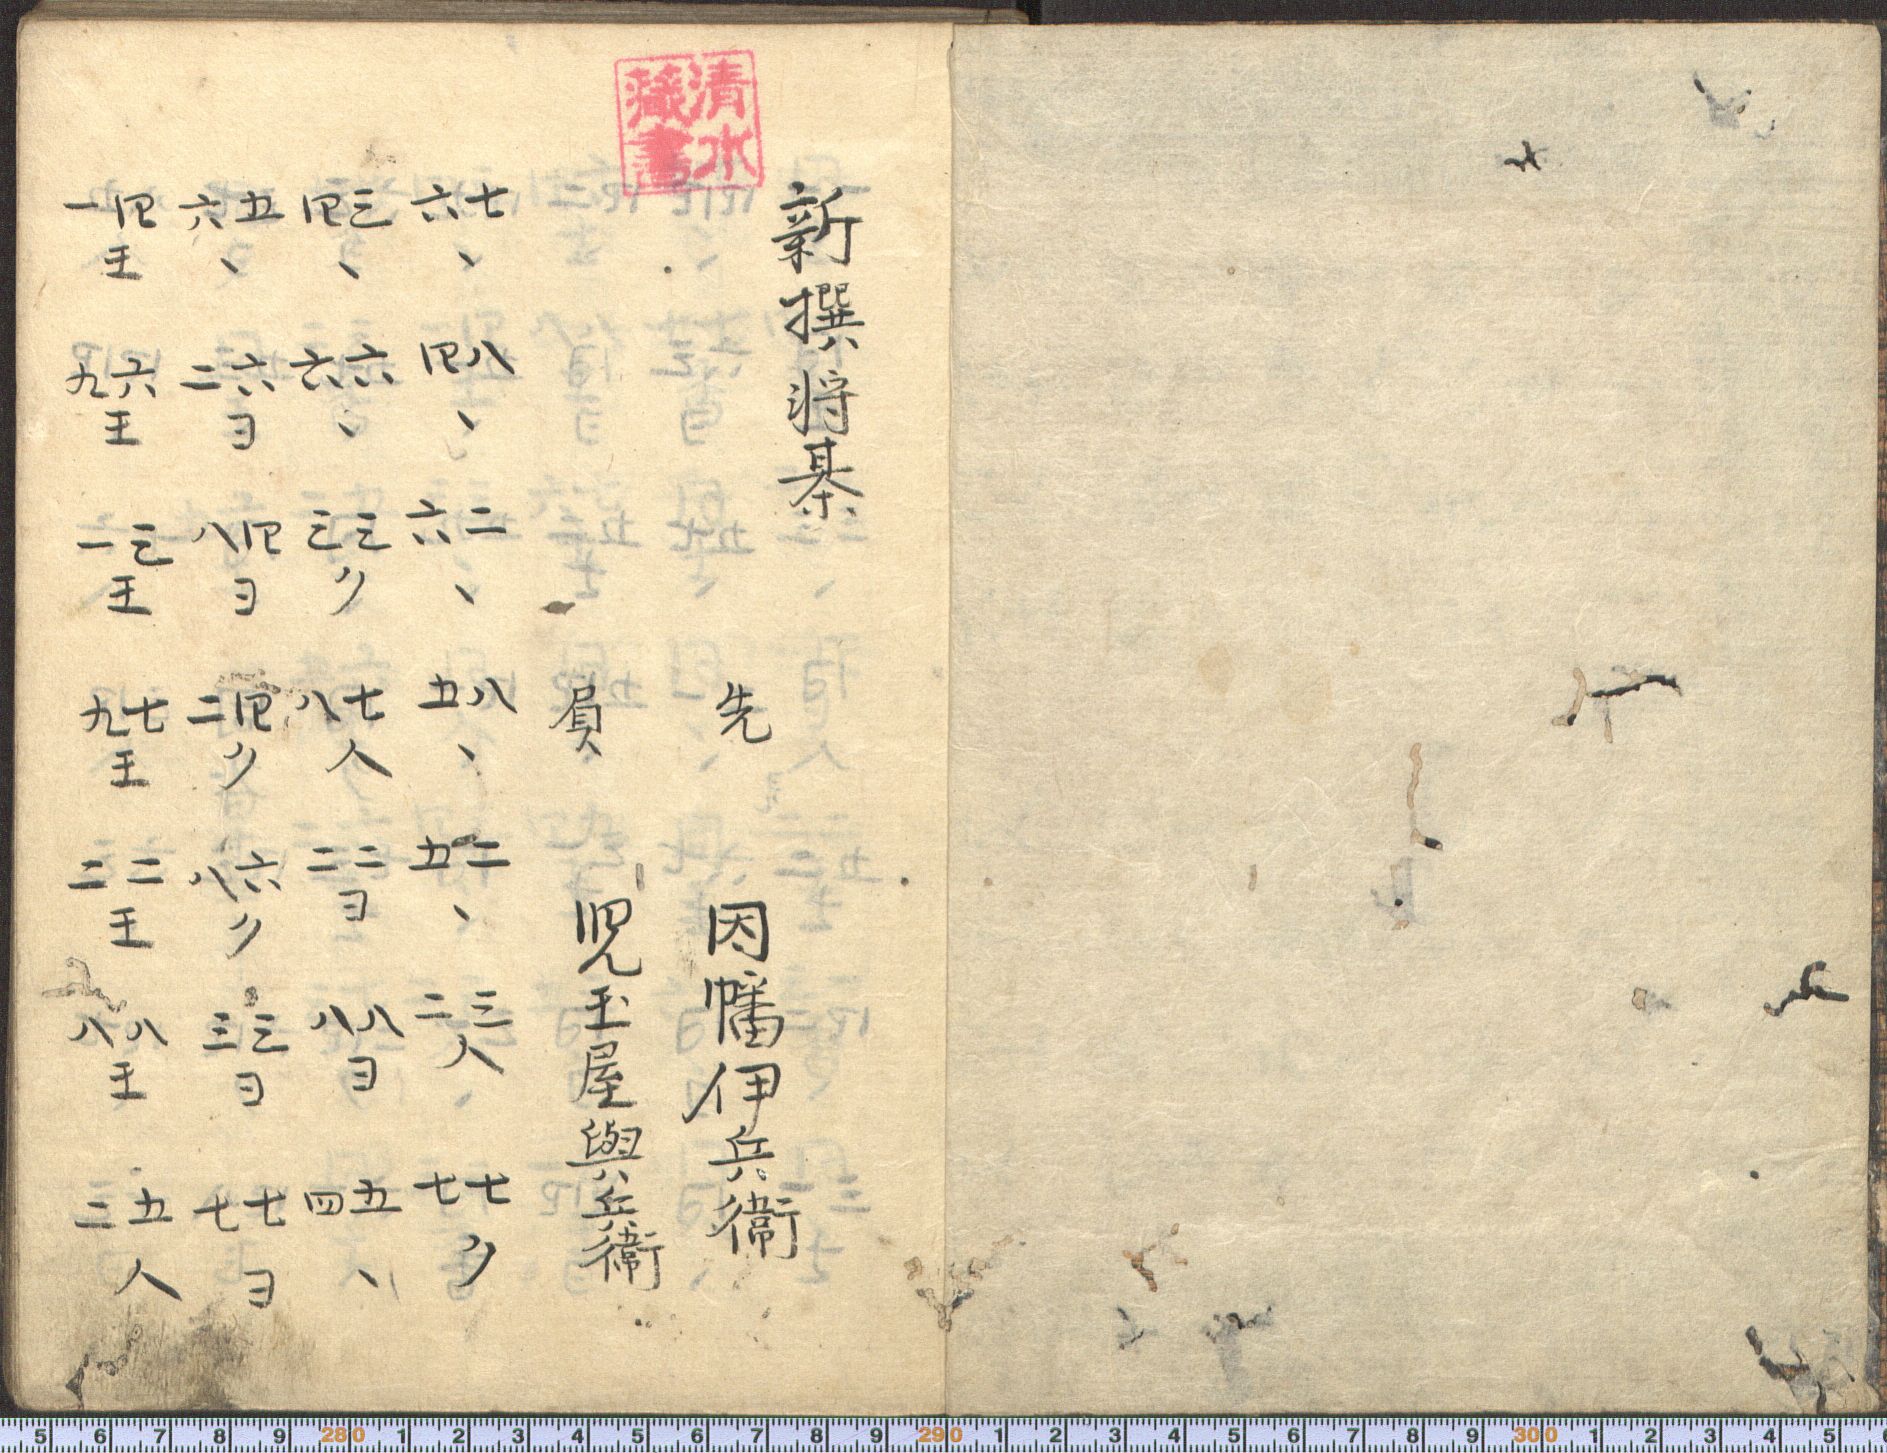 清水
藏書
新撰将棊
先 因幡伊兵衛
負 児玉屋與兵衛
七六、 八四、 二六、 八五、 二五、 三二人 七七ク
三四、 六六、 三三ク 七八人 二二ヨ 八八ヨ 五四、
五六、 六二ヨ 四八ヨ 四二ク 六八ク 三三ヨ 七七ヨ
四一王 六九王 三一王 七九王 二二王 八八王 五二人
5 6 7 8 9 280 1 2 3 4 5 6 7 8 9 290 1 2 3 4 5 6 7 8 9 300 1 2 3 4 5